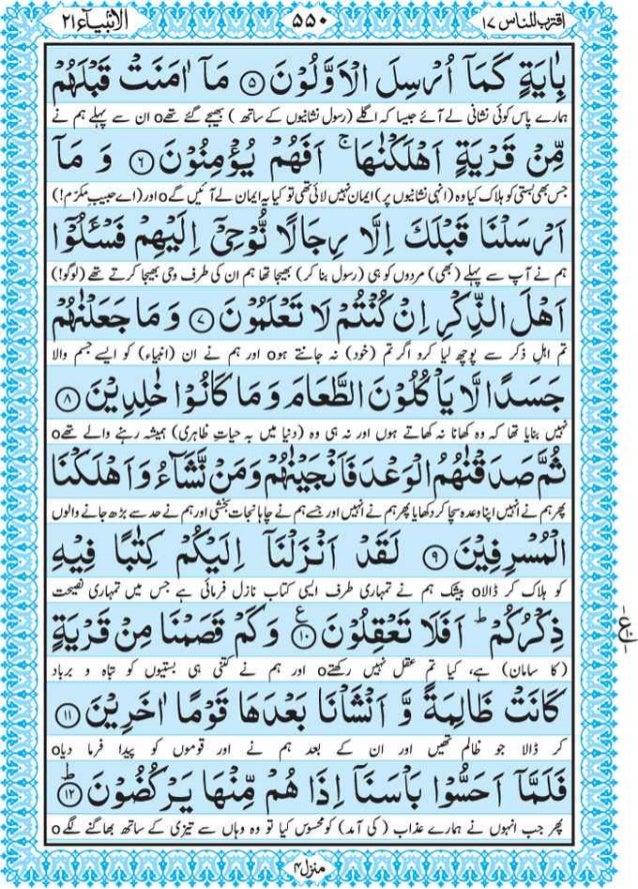 اقترب للناس ۱۷
۵۵۰
الانبیاء ۲۱
بِاٰيَةٍ كَمَاۤ اُرْسِلَ الْاَوَّلُوْنَ ۵ مَاۤ اٰمَنَتْ قَبْلَهُمْ
ہمارے پاس کوئی نشانی لے آئے جیسا کہ اگلے (رسول نشانیوں کے ساتھ) بھیجے گئے تھے o ان سے پہلے ہم نے
مِّنْ قَرْيَةٍ اَهْلَكْنٰهَا ۚ اَفَهُمْ يُؤْمِنُوْنَ ۶ وَ مَاۤ
جس بھی بستی کو ہلاک کیا وہ (انہی نشانیوں پر) ایمان نہیں لائی تھی تو کیا یہ ایمان لے آئیں گے o اور (اے حبیبِ مکرّم!)
اَرْسَلْنَا قَبْلَكَ اِلَّا رِجَالًا نُّوْحِيْۤ اِلَيْهِمْ فَسْـَٔلُوْۤا
ہم نے آپ سے پہلے (بھی) مردوں کو ہی (رسول بنا کر) بھیجا تھا ہم ان کی طرف وحی بھیجا کرتے تھے (لوگو!)
اَهْلَ الذِّكْرِ اِنْ كُنْتُمْ لَا تَعْلَمُوْنَ ۷ وَ مَا جَعَلْنٰهُمْ
تم اہلِ ذکر سے پوچھ لیا کرو اگر تم (خود) نہ جانتے ہو o اور ہم نے ان (انبیاء) کو ایسے جسم والا
جَسَدًا لَّا يَاْكُلُوْنَ الطَّعَامَ وَ مَا كَانُوْا خٰلِدِيْنَ ۸
نہیں بنایا تھا کہ وہ کھانا نہ کھاتے ہوں اور نہ ہی وہ (دنیا میں بہ حیاتِ ظاہری) ہمیشہ رہنے والے تھے o
ثُمَّ صَدَقْنٰهُمُ الْوَعْدَ فَاَنْجَيْنٰهُمْ وَمَنْ نَّشَآءُ وَ اَهْلَكْنَا
پھر ہم نے انہیں اپنا وعدہ سچا کر دکھایا پھر ہم نے انہیں اور جسے ہم نے چاہا نجات بخشی اور ہم نے حد سے بڑھ جانے والوں
الْمُسْرِفِيْنَ ۹ لَقَدْ اَنْزَلْنَاۤ اِلَيْكُمْ كِتٰبًا فِيْهِ
کو ہلاک کر ڈالا o بیشک ہم نے تمہاری طرف ایسی کتاب نازل فرمائی ہے جس میں تمہاری نصیحت
ذِكْرُكُمْ ؕ اَفَلَا تَعْقِلُوْنَ ۱۰ ع وَ كَمْ قَصَمْنَا مِنْ قَرْيَةٍ
(کا سامان) ہے، کیا تم عقل نہیں رکھتے o اور ہم نے کتنی ہی بستیوں کو تباہ و برباد
كَانَتْ ظَالِمَةً وَّ اَنْشَاْنَا بَعْدَهَا قَوْمًا اٰخَرِيْنَ ۱۱
کر ڈالا جو ظالم تھیں اور ان کے بعد ہم نے اور قوموں کو پیدا فرما دیا o
فَلَمَّاۤ اَحَسُّوْا بَاْسَنَاۤ اِذَا هُمْ مِّنْهَا يَرْكُضُوْنَ ؕ ۱۲
پھر جب انہوں نے ہمارے عذاب (کی آمد) کو محسوس کیا تو وہ وہاں سے تیزی کے ساتھ بھاگنے لگے o
منزل ۴